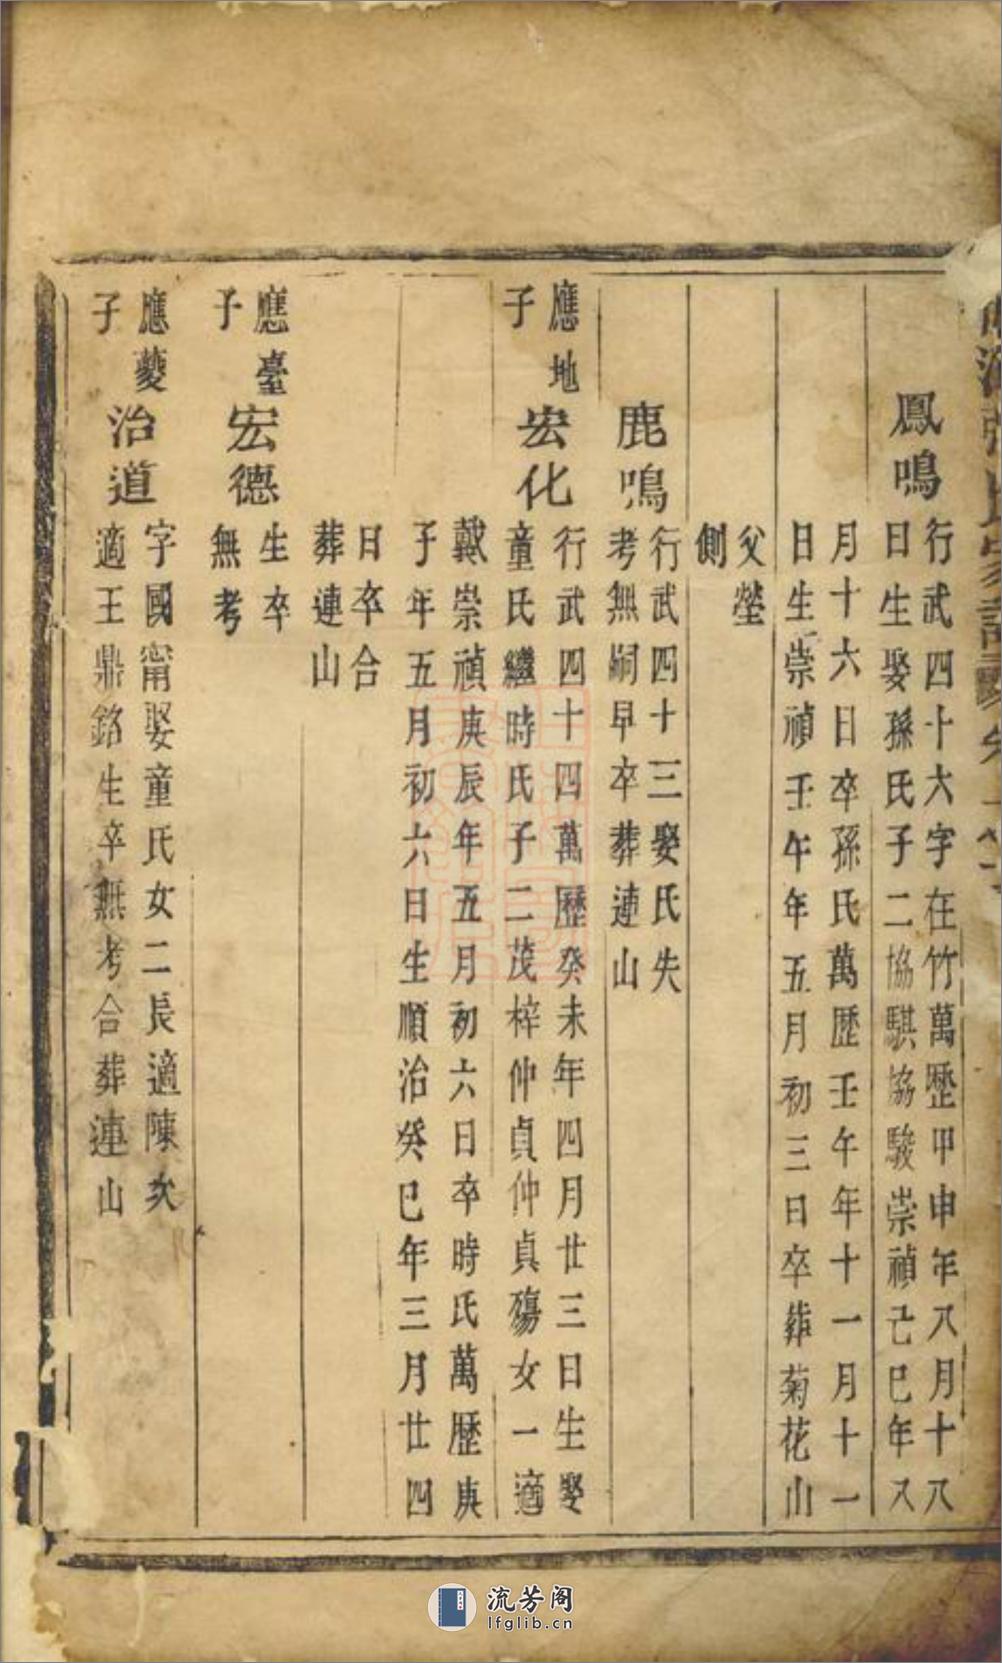 鳳鳴
行武四十六字在竹萬歷甲申年八月十八
日生娶孫氏子二協騏協駿崇禎己巳年又
月十六日卒孫氏萬歷壬午年十一月十一
日生崇禎壬午年五月初三日卒葬菊花山
父塋
側
鹿鳴
行武四十三娶氏失
考無嗣早卒葬連山
應地
子
宏化
行武四十四萬歷癸未年四月廿三日生娶
童氏繼時氏子二茂梓仲貞仲貞殤女一適
戴崇禎庚辰年五月初六日卒時氏萬歷庚
子年五月初六日生順治癸巳年三月廿四
日卒合
葬連山
應臺
子
宏德
生卒
無考
應夔
子
治道
字國甯娶童氏女二長適陳次
適王鼎銘生卒無考合葬連山
流芳阁
lfglib.cn